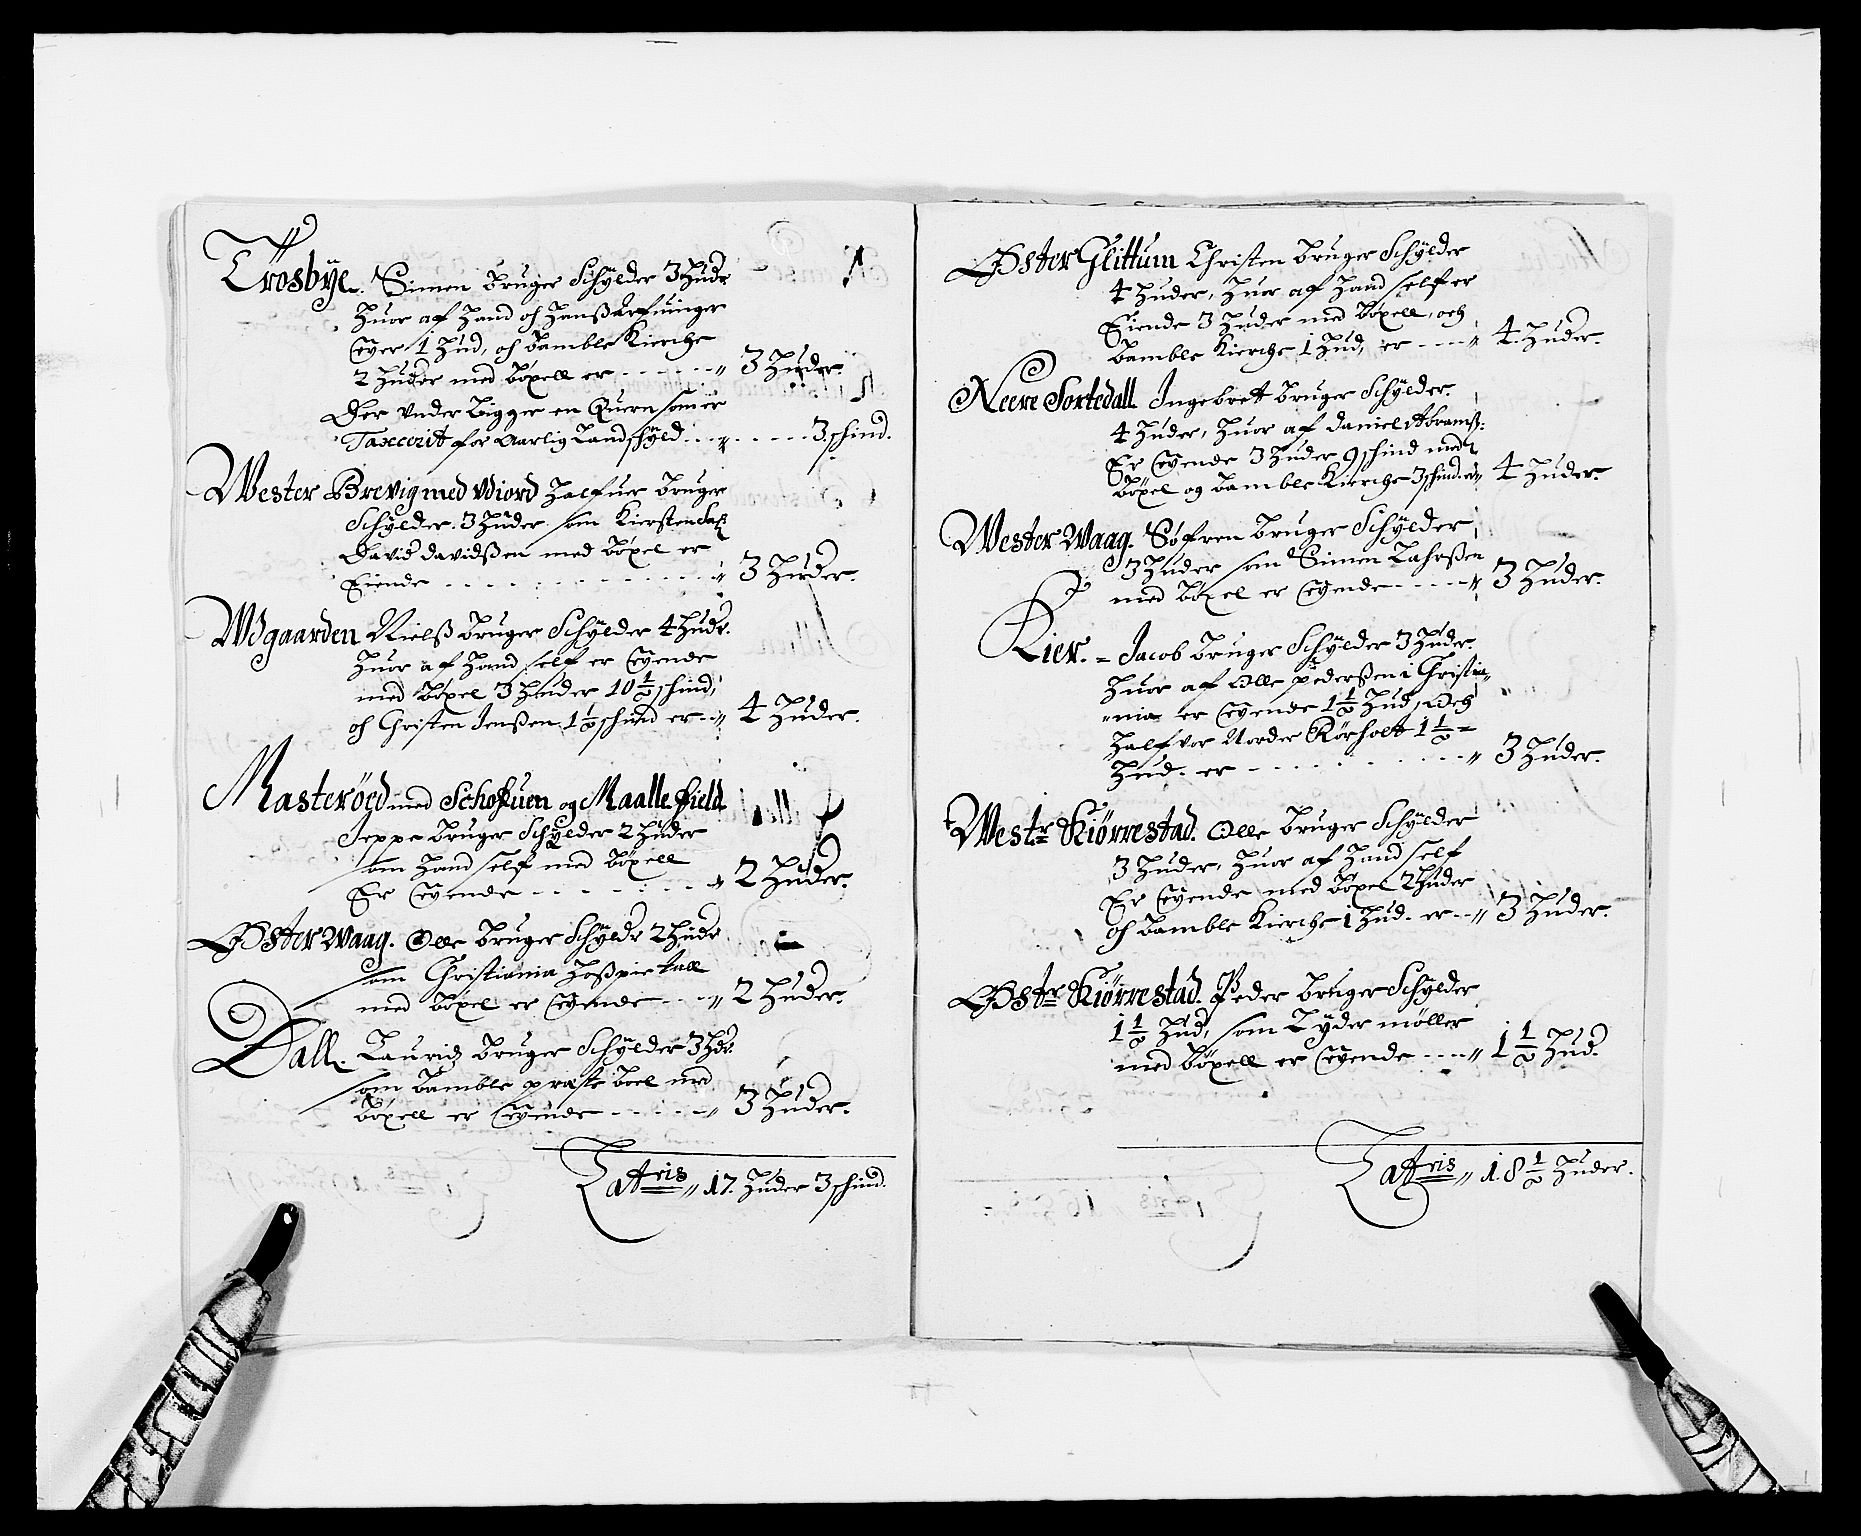 Trosbye. Simen bruger Schylder 3 Hudr
Huor af Hand och Hanß Arfuinger
Eyer 1 Hud, och Bamble Kierche
2 Huder med böxell er - - - - - - „ 3 Huder.
Der vnder ligger en Quern som er
Taxerit for Aarlig Landschyld . . „ - - - - - 3 schind.
Wester Brevig med Vdiord Halfuer bruger
Schylder 3 Huder som Kiersten Sal:
David Davidßen med böxel er
Eiende - - - - - - - - - - - „ 3 Huder.
Wdgaarden Nielß bruger Schylder 4 Hudr.
Huor af Hand self er Eyende
med böxel 3 Huder 10 1/2 schind,
och Christen Jenßen 1 1/2 schind er - - „ 4 Huder.
Masteröed med Schofuen og Maalle field
Jeppe bruger Schylder 2 Huder
som Hand self med böxell
Er Eyende - - - - - - - „ 2 Huder.
Öster Waag. Olle bruger Schyldr 2 Hudr
som Christiania Hoßpie tall
med böxel er Eyende - - - „ 2 Huder.
Dall. Lauridz bruger Schylder 3 Hdr.
som Bamble præste boel med
böxell er Eyende - - - - - - „ 3 Huder.
Lattris „ 17. Huder 3 schind.
Öster Glittum Christen bruger Schylder
4 Huder, Huor af Hand self er
Eiende 3 Huder med böxell, och
Bamble Kierche 1 Hud, er - - - „ 4 Huder.
Neere Sortedall Ingebret bruger Schylder.
4 Huder, Huor af Daniel Abramß:
Er Eyende 3 Huder 9 schind med
böxel og Bamble Kierche 3 schind. er „ 4 Huder.
Wester Waag. Söfren bruger Schylder
3 Huder som Simen Lahrßen
med böxel er Eyende - - - - „ 3 Huder.
Kier. = Jacob bruger Schylder 3 Huder.
Huor af Olle Pederßen i Christia„
„nia er Eyende 1 1/2 Hud, och
Halfvor Norder Körholt 1 1/2 =
Hud. er - - - - - - - - - - „ 3 Huder.
Westr Kiörrestad. Olle bruger Schylder
3 Huder, Huor af Hand self
Er Eyende med böxel 2 Huder
och Bamble Kierche 1 Hud. er - - „ 3 Huder.
Östr Kiörrestad. Peder bruger Schylder
1 1/2 Hud, som Lyder möller
med böxell er Eyende - - - - „ 1 1/2 Hud.
Lattris „ 18 1/2 Huder.